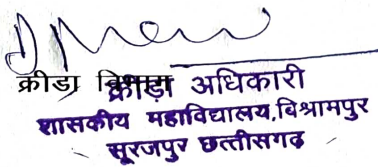 क्रीडा अधिकारी
शासकीय महाविद्यालय,बिश्रामपुर
सूरजपुर छत्तीसगढ़